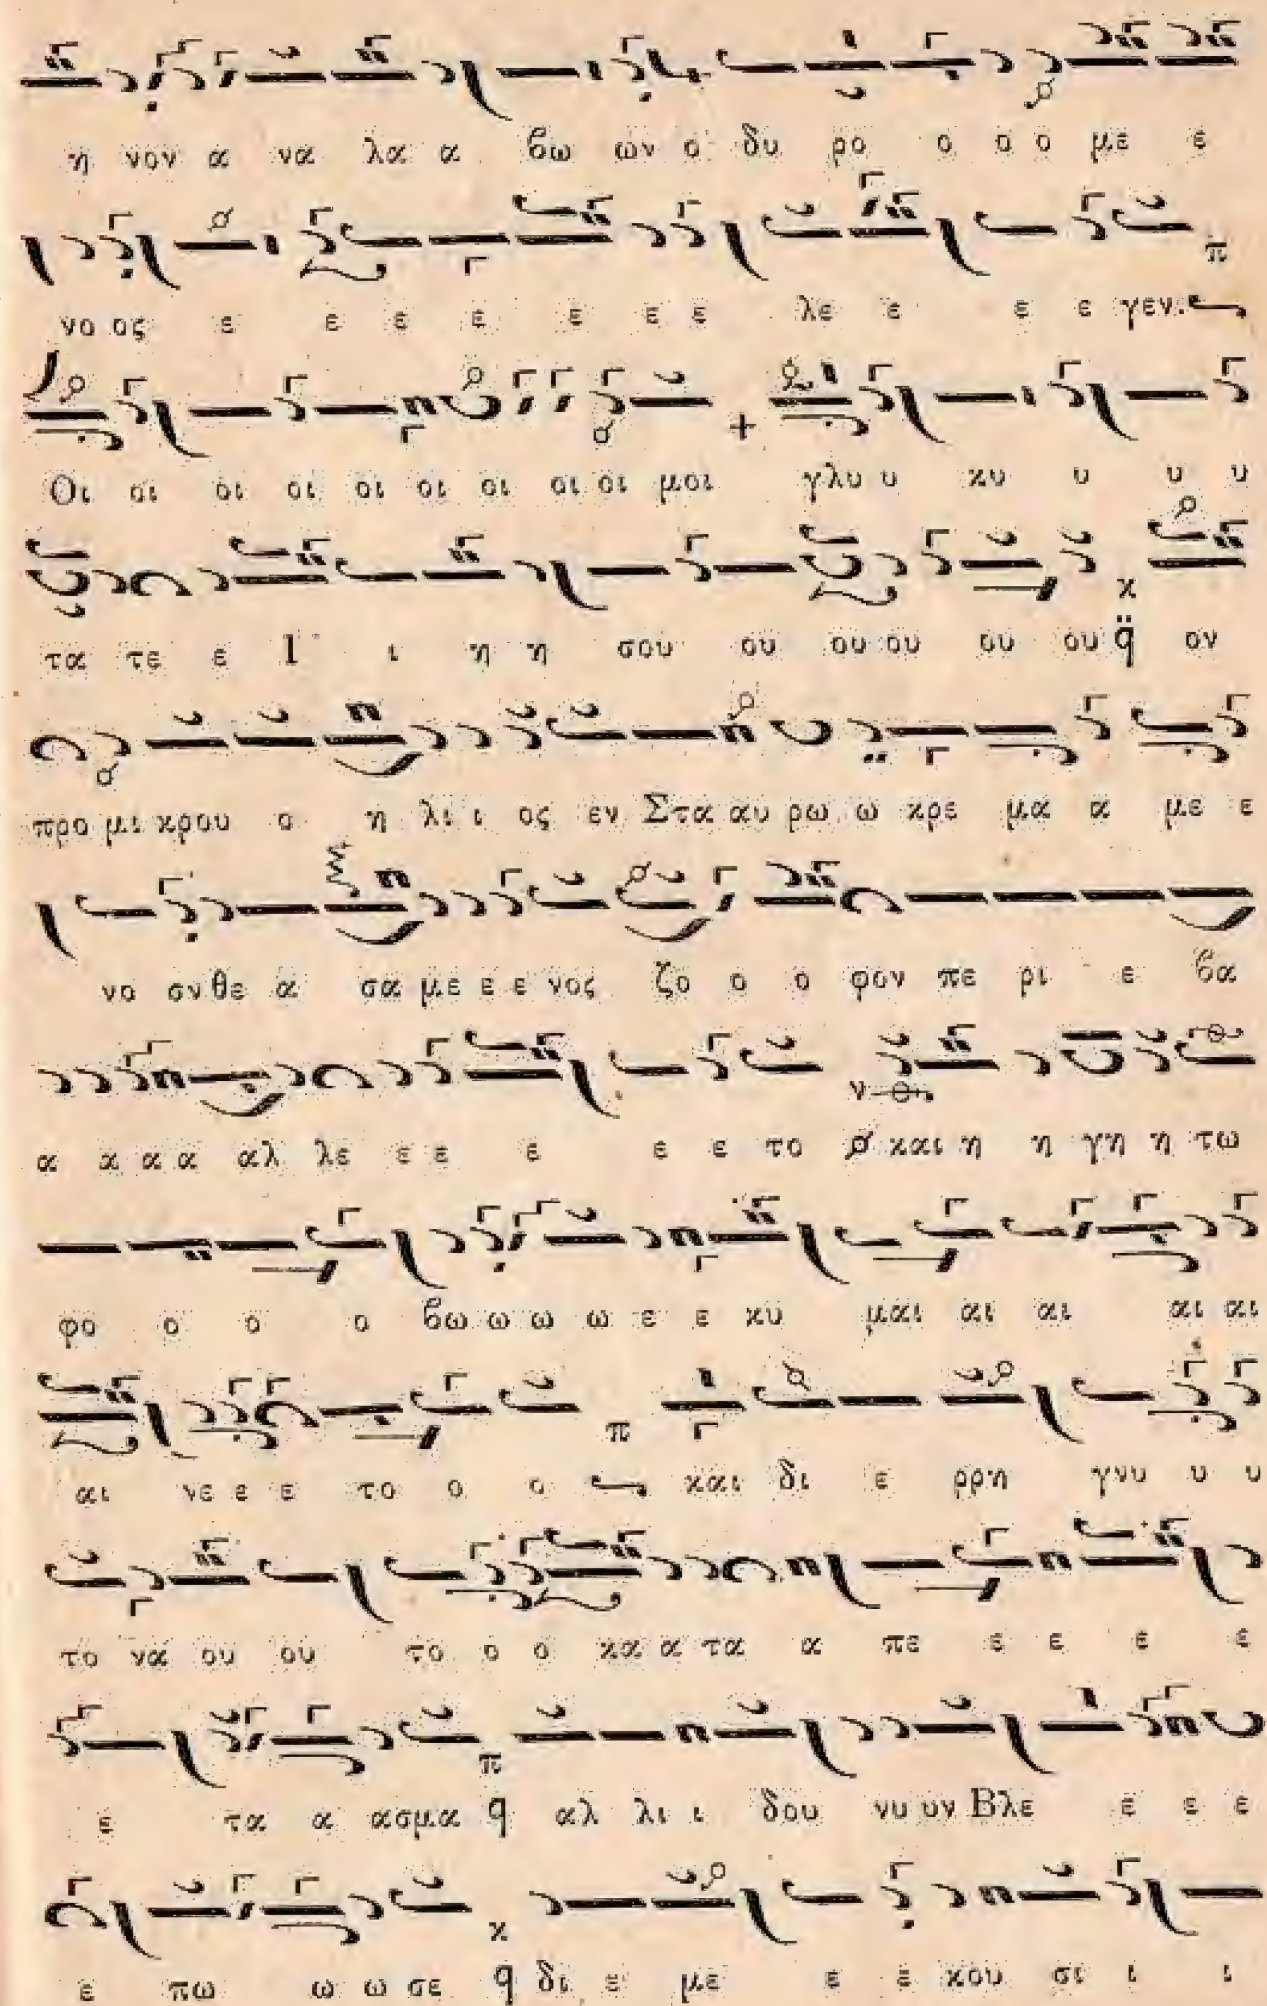 η νον α να λα α βω ων ο δυ ρο ο ο ο με ε
νο ος ε ε ε ε ε ε ε λε ε ε ε γεν
Οι οι οι οι οι οι οι οι οι μοι γλυ υ κυ υ υ υ
τα τε ε Ι ι η η σου ου ου ου ου ου ον
προ μι κρου ο η λι ι ος εν Στα αυ ρω ω κρε μα α με ε
νο ον θε α σα με ε ε νος ζο ο ο φον πε ρι ε βα
α α α α αλ λε ε ε ε ε ε το και η η γη η τω
φο ο ο ο βω ω ω ω ε ε κυ μαι αι αι αι αι
αι νε ε ε το ο ο και δι ε ρρη γνυ υ υ
το να ου ου το ο ο κα α τα α πε ε ε ε ε
ε τα α ασμα αλ λι ι δου νυ υν Βλε ε ε ε
ε πω ω ω σε δι ε με ε ε κου σι ι ι